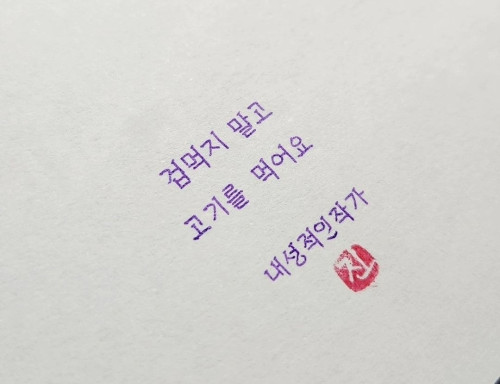 겁먹지 말고
고기를 먹어요
내성적인작가
진